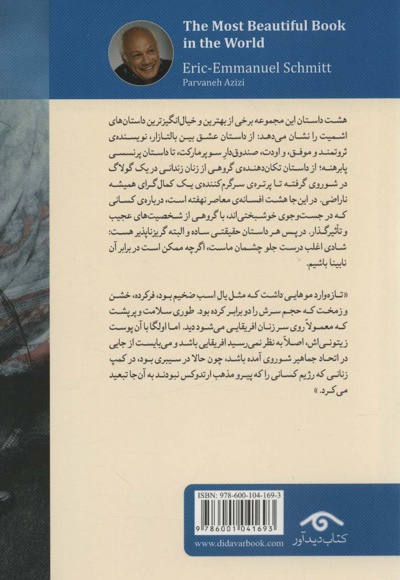 The Most Beautiful Book
in the World
Eric-Emmanuel Schmitt
Parvaneh Azizi
هشت داستان این مجموعه برخی از بهترین و خیال‌انگیزترین داستان‌های
اشمیت را نشان می‌دهد: از داستان عشق بین بالتازار، نویسنده‌ی
ثروتمند و موفق، و اودت، صندوق‌دار سوپرمارکت، تا داستان پرنسسی
پابرهنه؛ از داستان تکان‌دهنده‌ی گروهی از زنان زندانی در یک گولاگ
در شوروی گرفته تا پرتره‌ی سرگرم‌کننده‌ی یک کمال‌گرای همیشه
ناراضی. در این‌جا هشت افسانه‌ی معاصر نهفته است، درباره‌ی کسانی
که در جست‌وجوی خوشبختی‌اند، با گروهی از شخصیت‌های عجیب
و تأثیرگذار. در پس هر داستان حقیقتی ساده و البته گریزناپذیر هست:
شادی اغلب درست جلو چشمان ماست، اگرچه ممکن است در برابر آن
نابینا باشیم.
«تازه‌وارد موهایی داشت که مثل یال اسب ضخیم بود، فرکرده، خشن
و زمخت که حجم سرش را دو برابر کرده بود. طوری سلامت و پرپشت
که معمولاً روی سر زنان افریقایی می‌شود دید. اما اولگا با آن پوست
زیتونی‌اش، اصلاً به نظر نمی‌رسید افریقایی باشد و می‌بایست از جایی
در اتحاد جماهیر شوروی آمده باشد، چون حالا در سیبری بود، در کمپ
زنانی که رژیم کسانی را که پیرو مذهب ارتدوکس نبودند به آن‌جا تبعید
می‌کرد.»
ISBN: 978-600-104-169-3
9 786001 041693
www.didavarbook.com
کتاب دیدآور